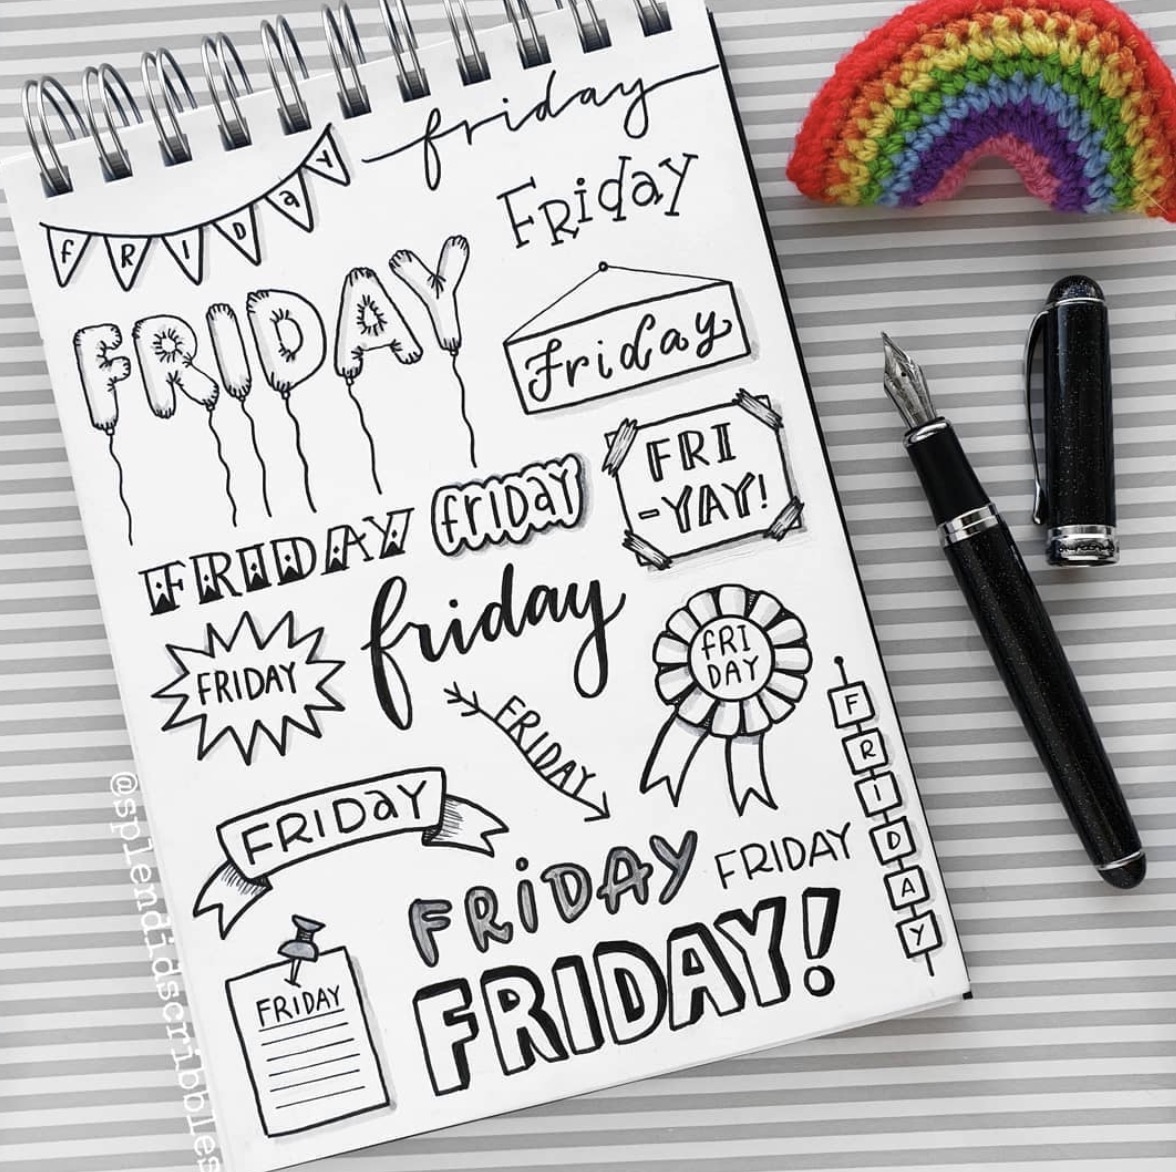 friday
FRIDaY
Friday
FRIDAY
Friday
FRI
-YAY!
FRIDAY
FRIDay
FRIDAY
friday
fRI
DAY
FRIDAY
FRIDAY
FRIDaY
FRiDAY
FRIDAY
FRIDAY
FRIDAY!
FRIDAY
@splendidscribbles